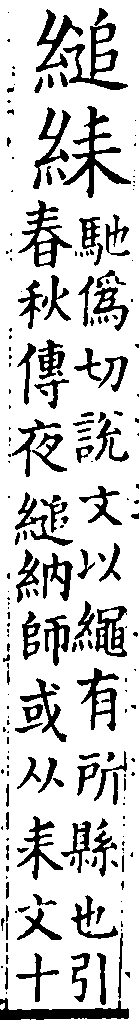 縋䋘
馳僞切說文以繩有所縣也引
春秋傳夜縋納師或从耒文十